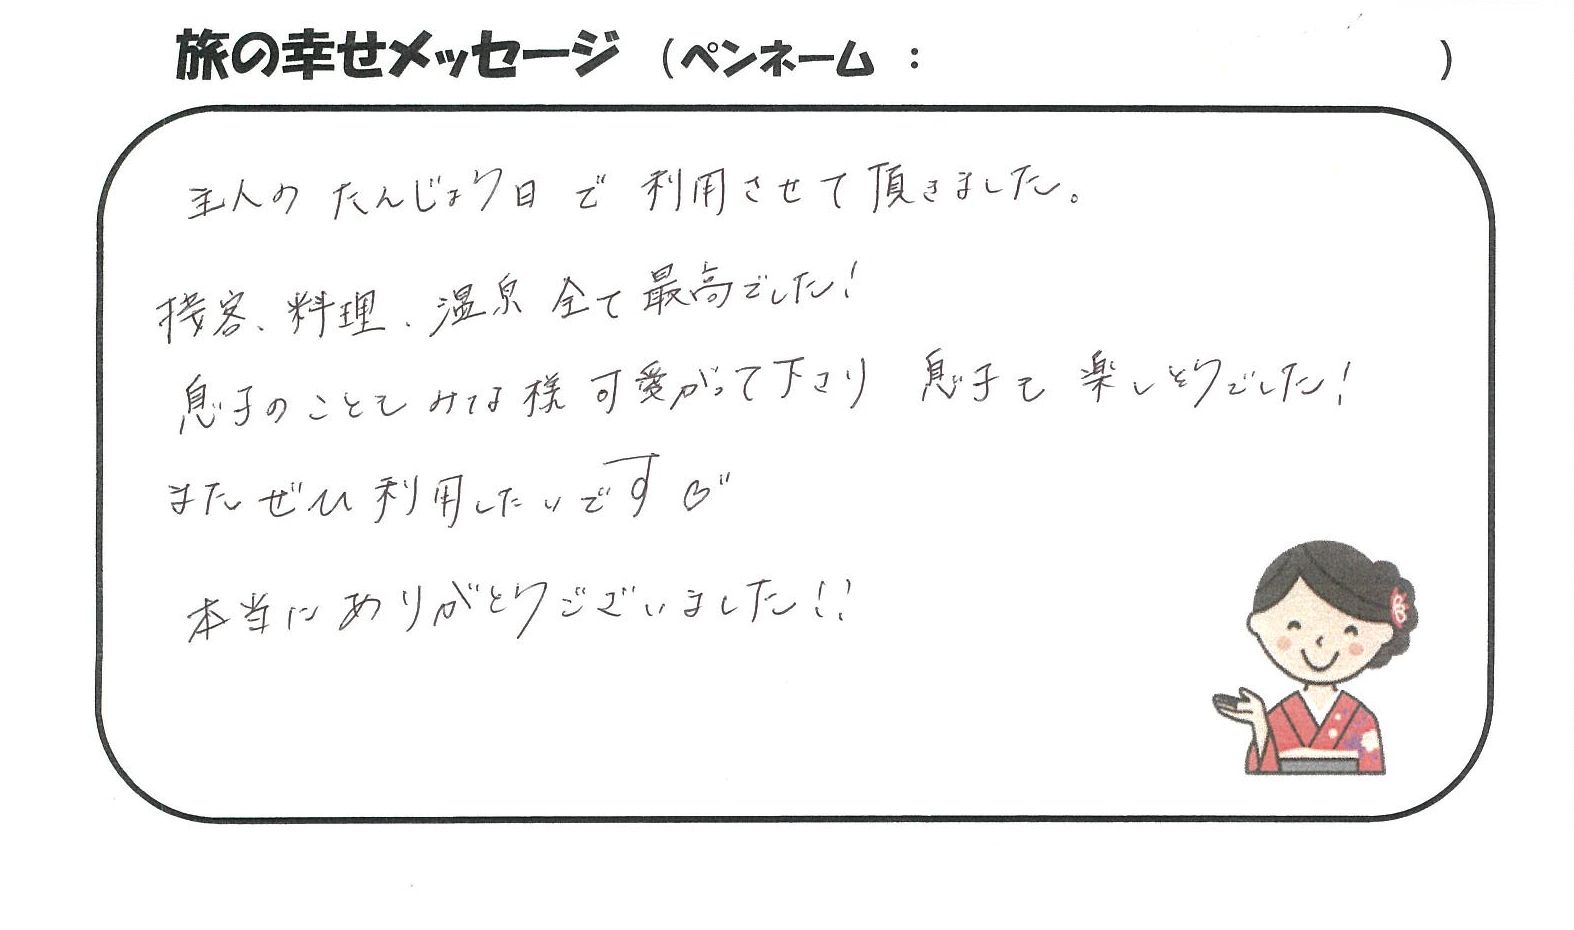 旅の幸せメッセージ （ペンネーム ：　　　　）
主人の たんじょう日 で 利用させて頂きました。
接客、料理、温泉 全て 最高でした！
息子のことも みなる様 可愛がって下さり 息子も 楽しそうでした！
またぜひ 利用したいです♡"
本当に ありがとうございました！！